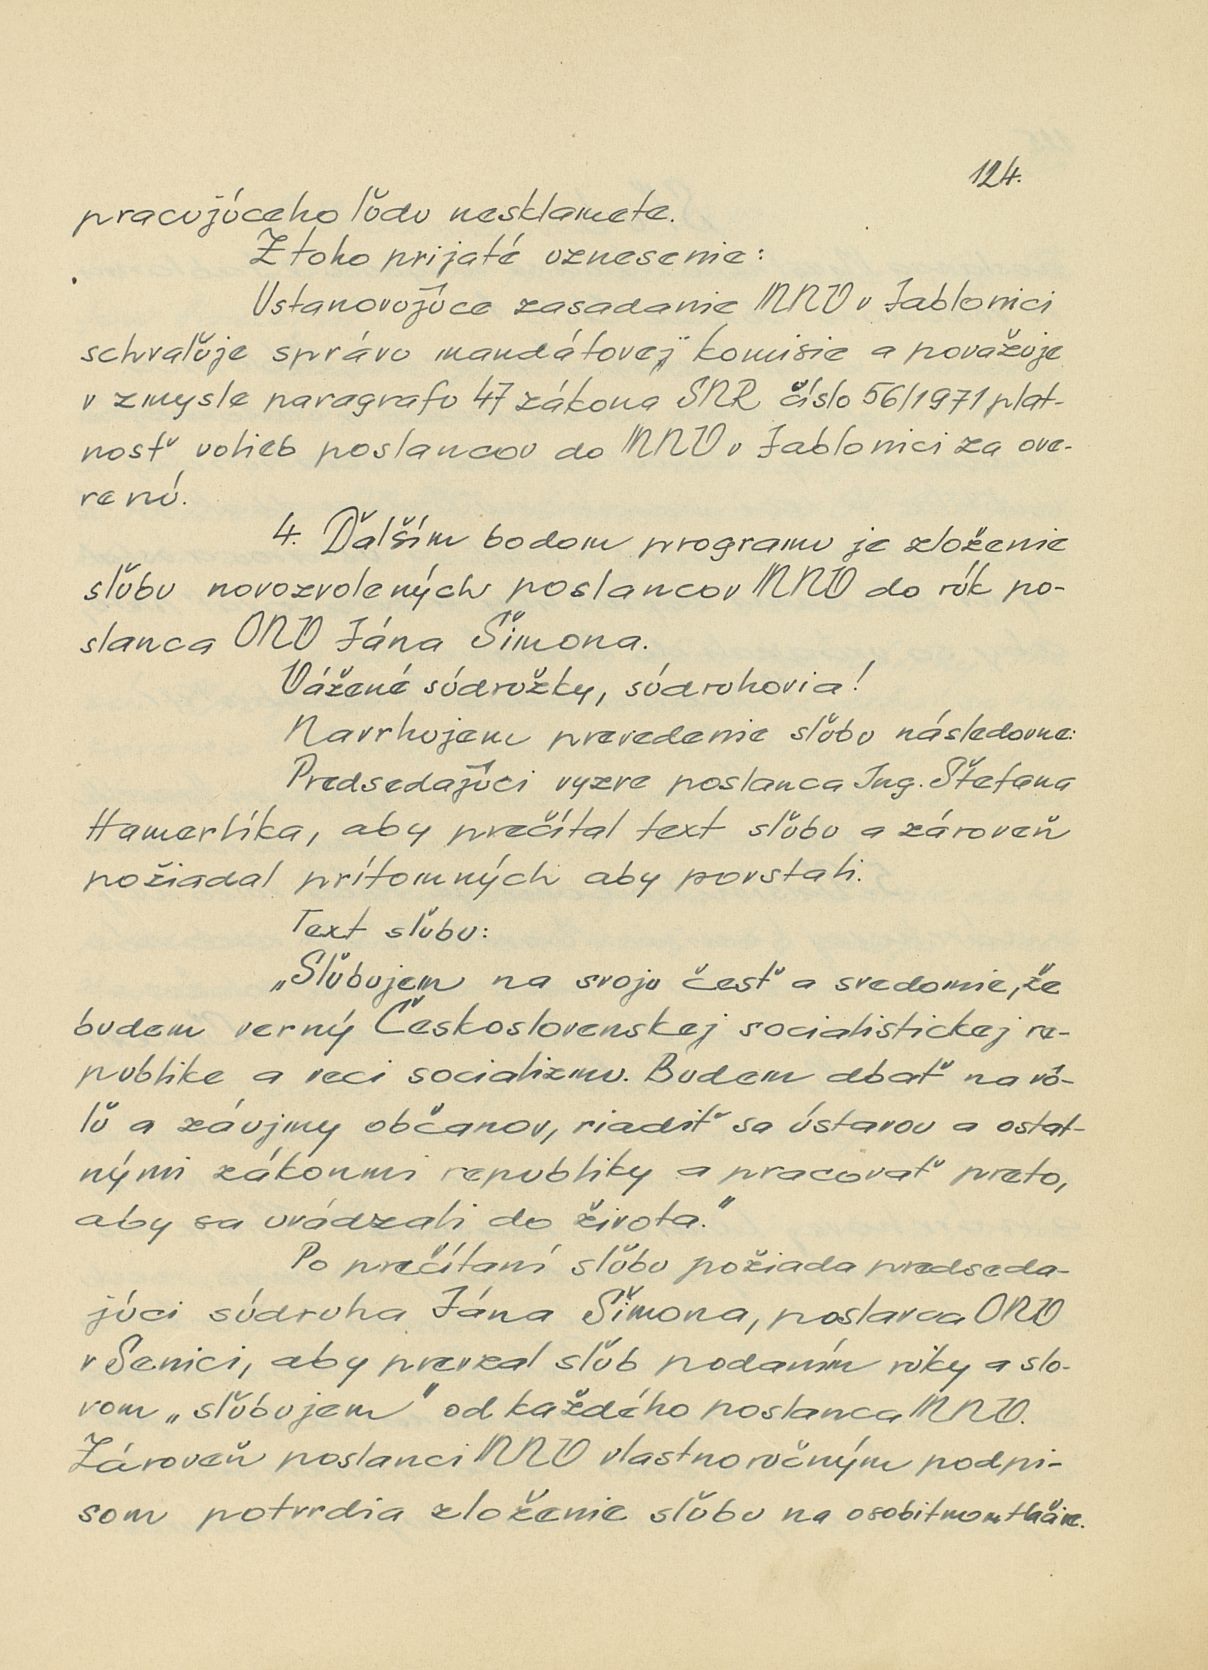 124.
pracujúceho ľudu nesklamete.
Z toho prijaté uznesenie:
Ustanovujúce zasadanie MNV v Jablonici
schvaľuje správu mandátovej komisie a považuje
v zmysle paragrafu 47 zákona SNR číslo 56/1971 plat-
nosť volieb poslancov do MNV v Jablonici za ove-
renú.
4. Ďalším bodom programu je zloženie
sľubu novozvolených poslancov MNV do rúk po-
slanca ONV Jána Šimona.
Vážené súdružky, súdruhovia!
Navrhujem prevedenie sľubu následovne:
Predsedajúci vyzve poslanca Ing. Štefana
Hamerlíka, aby prečítal text sľubu a zároveň
požiadal prítomných aby povstali.
Text sľubu:
„Sľubujem na svoju česť a svedomie, že
budem verný Československej socialistickej re-
publike a veci socializmu. Budem dbať na vô-
ľu a záujmy občanov, riadiť sa ústavou a ostat-
nými zákonmi republiky a pracovať preto,
aby sa uvádzali do života."
Po prečítaní sľubu požiada predseda-
júci súdruha Jána Šimona, poslanca ONV
v Senici, aby prevzal sľub podaním ruky a slo-
vom „sľubujem" od každého poslanca MNV.
Zároveň poslanci MNV vlastnoručným podpi-
som potvrdia zloženie sľubu na osobitnom tlačive.